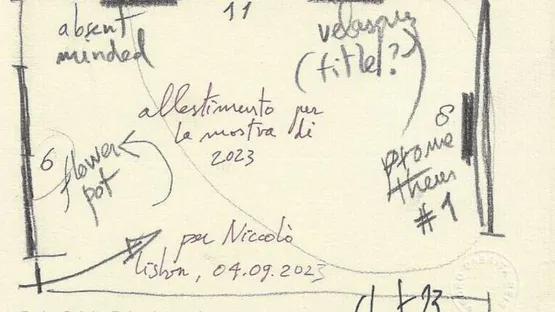 11
absent
minded
velasquez
(title?)
allestimento per
la mostra di
2023
8
Prome
theus
#1
6
flower
pot
per Niccolò
Lisbon, 04.09.2023